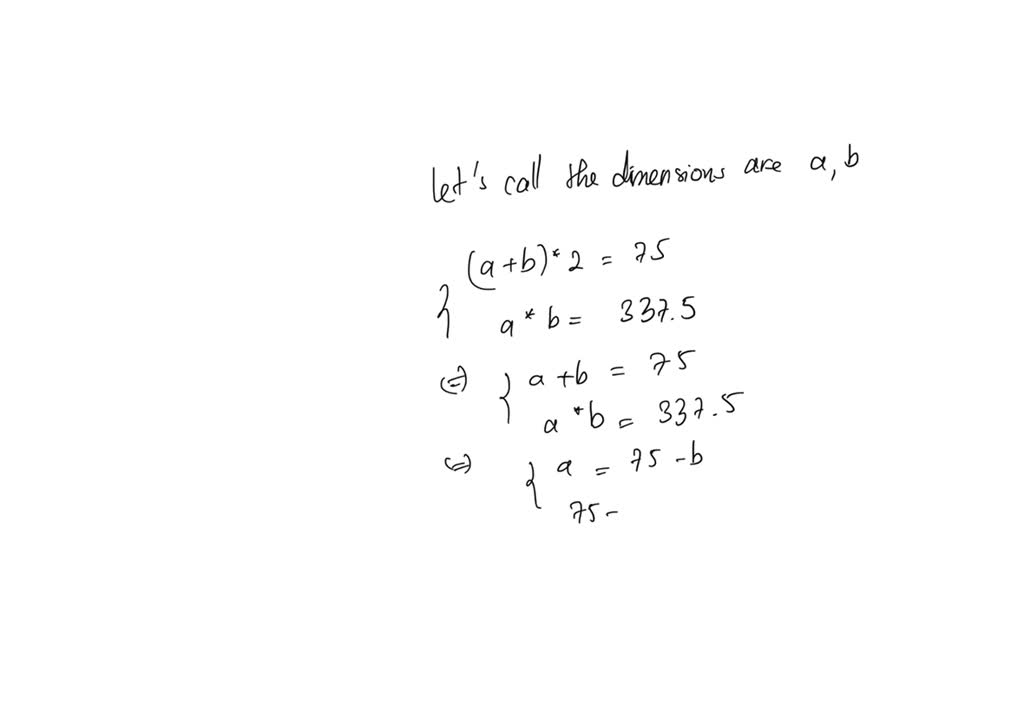 let's call the dimensions are a, b
(a+b)*2 = 75
a * b = 337.5
(=) { a + b = 75
a * b = 337.5
(=) { a = 75 - b
75 -